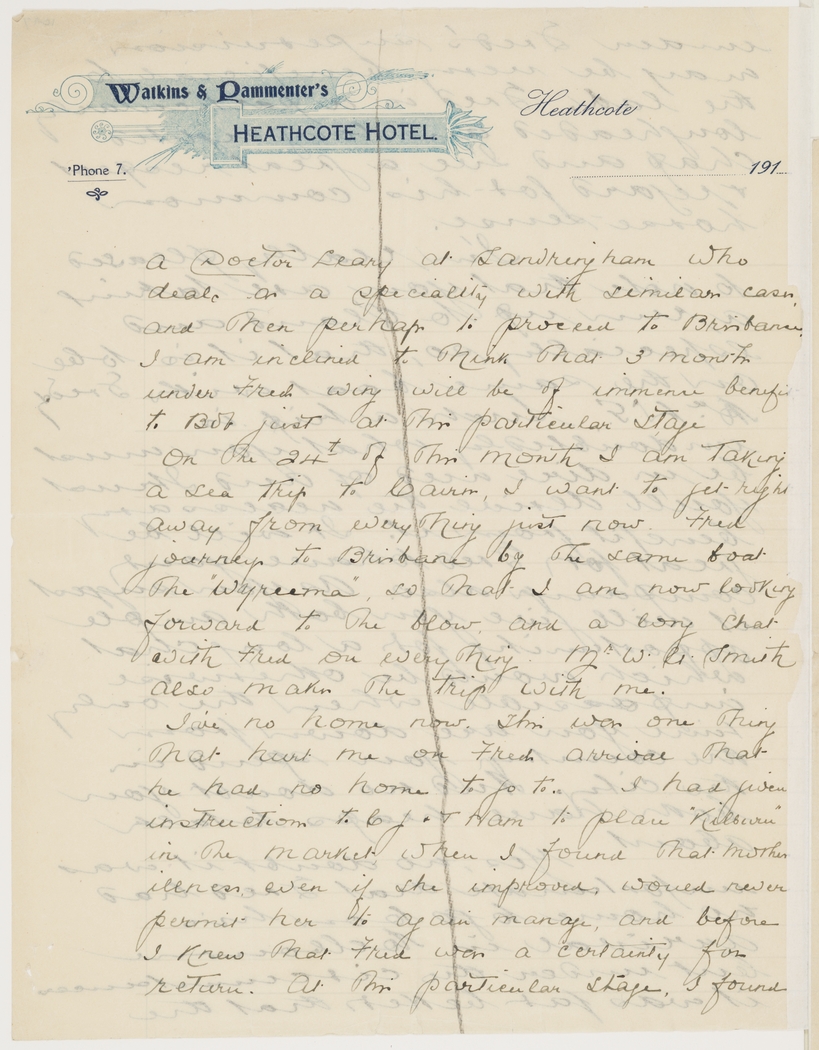 Watkins & Pammenter's
Heathcote Hotel.
Heathcote
'Phone 7.
191
a Doctor Leary at Sandringham who
deals as a speciality with similar cases,
and then perhaps to proceed to Brisbane.
I am inclined to think that 3 months
under Freds wing will be of immense benefit
to Bob just at this particular stage
On the 24t of this month I am taking
a sea trip to Cairns, I want to get right
away from everything just now. Fred
journeys to Brisbane by the same boat
the "Wyreema", so that I am now looking
forward to the blow, and a long chat
with Fred on everything. Mr W. G. Smith
also makes the trip with me.
I've no home now, this was one thing
that hurt me on Freds arrival that
he had no home to go to. I had given
instructions to C J & T Ham to place "Kilburn"
in the market, when I found that mothers
illness even if she improved, would never
permit her to again manage, and before
I knew that Fred was a certainty for
return. At this particular stage, I found